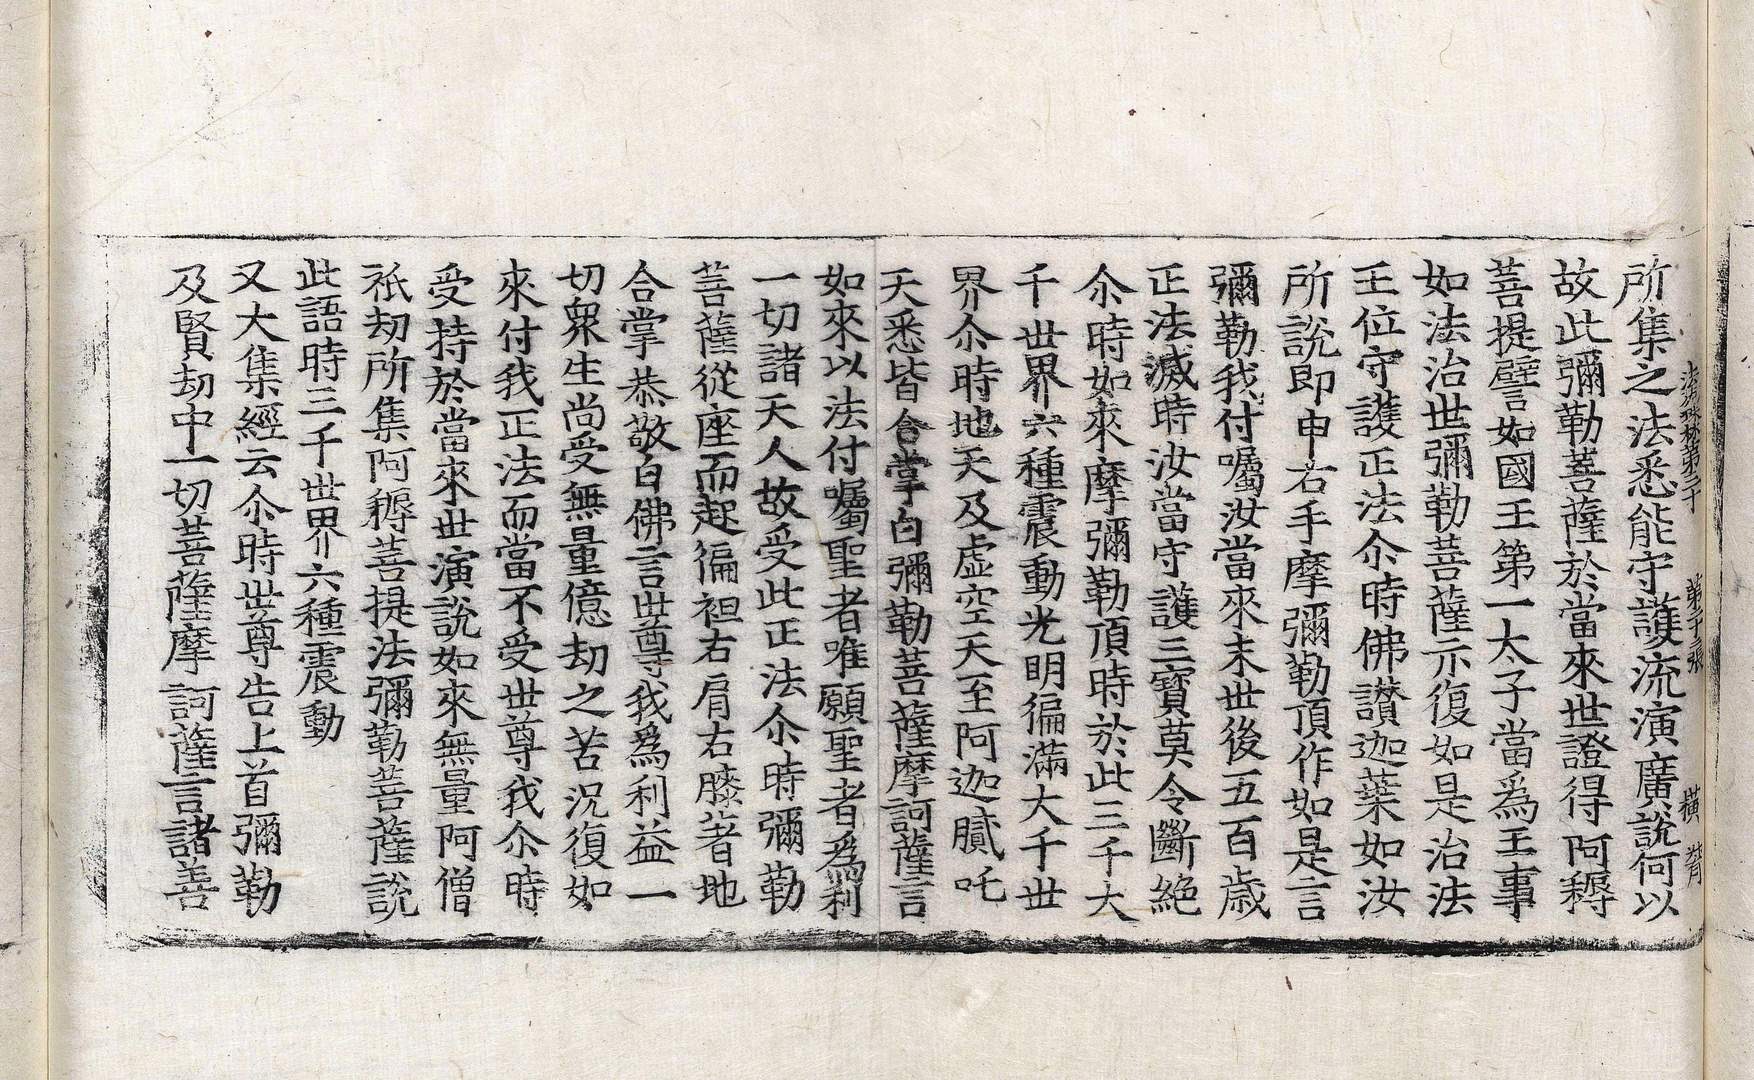 法苑珠林第三十　第二十三張　橫　背
所集之法悉能守護流演廣說何以
故此彌勒菩薩於當來世證得阿耨
菩提譬如國王第一太子當為王事
如法治世彌勒菩薩亦復如是治法
王位守護正法尒時佛讚迦葉如汝
所說即申右手摩彌勒頂作如是言
彌勒我付囑汝當來末世後五百歲
正法滅時汝當守護三寶莫令斷絕
尒時如來摩彌勒頂時於此三千大
千世界六種震動光明徧滿大千世
界尒時地天及虛空天至阿迦膩吒
天悉皆合掌白彌勒菩薩摩訶薩言
如來以法付囑聖者唯願聖者為利
一切諸天人故受此正法尒時彌勒
菩薩從座而起徧袒右肩右膝著地
合掌恭敬白佛言世尊我為利益一
切衆生尚受無量億劫之苦況復如
來付我正法而當不受世尊我尒時
受持於當來世演說如來無量阿僧
祇劫所集阿耨菩提法彌勒菩薩說
此語時三千世界六種震動
又大集經云尒時世尊告上首彌勒
及賢劫中一切菩薩摩訶薩言諸善